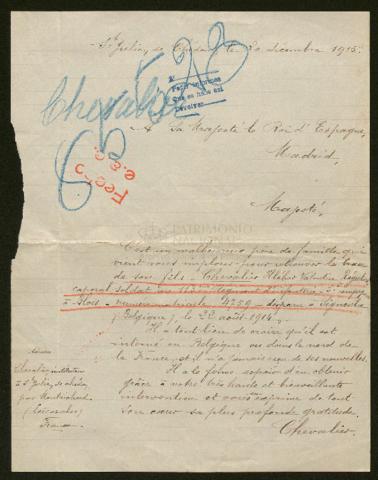 St Julien de Chédon le 30 décembre 1915.
Chevalier
Pedir informes
que se
devolver
A Sa Majesté le Roi d'Espagne,
Madrid.
Fegó
e.e.e.
Majesté,
PATRIMONIO
C'est un malheureux père de famille qui
vient vous implorer pour retrouver la trace
de son fils - Chevalier Valentin
caporal soldat au régiment d'infanterie
à Blois - numéro matricule 4299 - disparu à Signeulx
(Belgique), le 22 août 1914.
Il a tout lieu de croire qu'il est
interné en Belgique ou dans le nord de
la France, et il n'a jamais reçu de ses nouvelles.
Il a le ferme espoir d'en obtenir
grâce à votre très haute et bienveillante
intervention et vous exprime de tout
son cœur sa plus profonde gratitude.
Chevalier
Adresse
Chevalier instituteur
à St Julien de Chédon,
par Montrichard
(Loir et Cher)
France